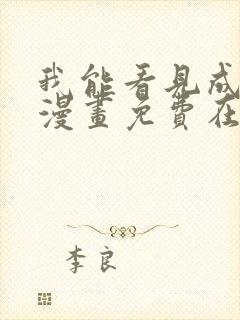 我能看見成
漫畫免費在
李良